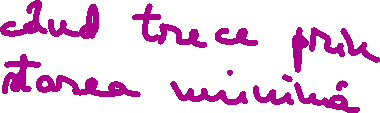 când trece prin
starea minimă